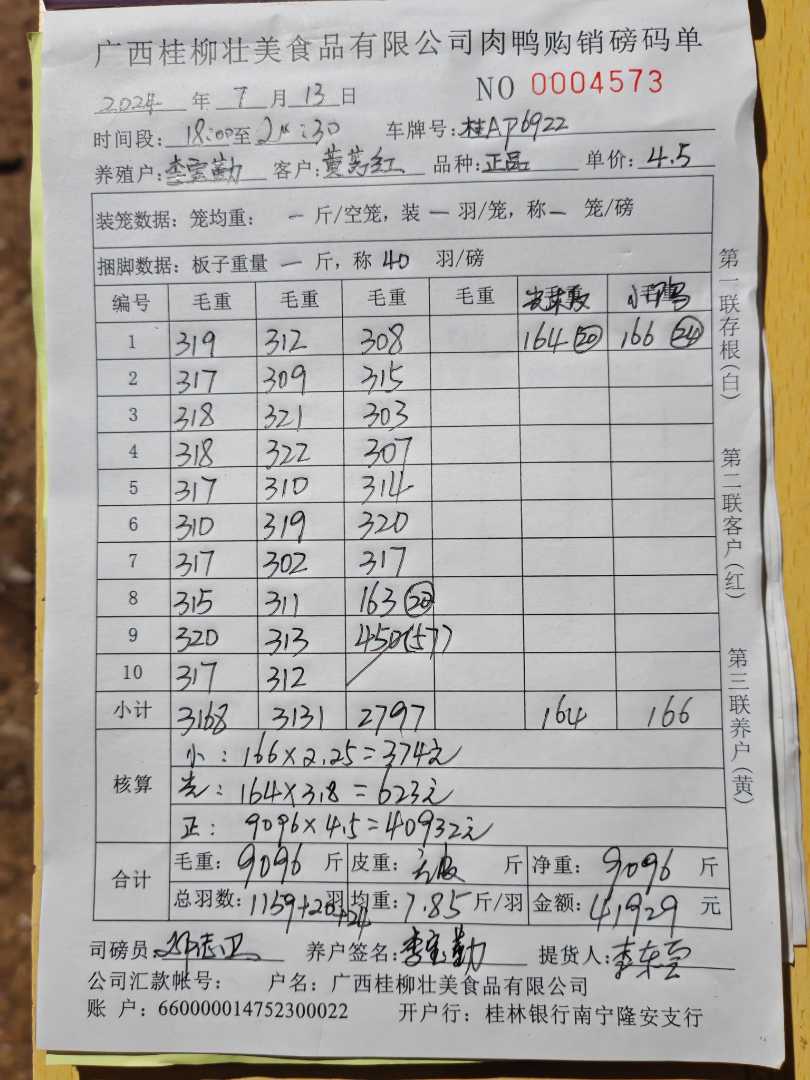 广西桂柳壮美食品有限公司肉鸭购销磅码单
NO 0004573
2024 年 7 月 13 日
时间段: 18:00至 :30 车牌号: 桂AP6922
养殖户: 李宝勤 客户: 黄 红 品种: 正品 单价: 4.5
装笼数据: 笼均重: 一 斤/空笼, 装 一 羽/笼, 称 一 笼/磅
捆脚数据: 板子重量 一 斤, 称 40 羽/磅
编号 毛重 毛重 毛重 毛重
1 319 312 308 164 (20) 166 (24)
2 317 309 315
3 318 321 303
4 318 322 307
5 317 310 314
6 310 319 320
7 317 302 317
8 315 311 163 (20)
9 320 313 450(57)
10 317 312
小计 3168 3131 2797 164 166
核算
小: 166×2.25=374元
164×3.8=623元
正: 9096×4.5=40932元
合计
毛重: 9096 斤 皮重: 斤 净重: 9096 斤
总羽数: 1159+20+24 羽 均重: 7.85 斤/羽 金额: 41929 元
司磅员: 养户签名: 李宝勤 提货人:
公司汇款帐号: 户名: 广西桂柳壮美食品有限公司
账 户: 660000014752300022 开户行: 桂林银行南宁隆安支行
第一联存根(白)
第二联客户(红)
第三联养户(黄)